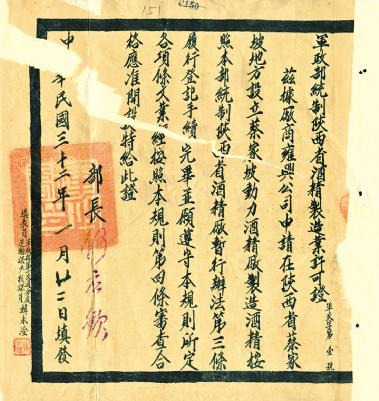 150
151
軍政部統制陝西省酒精製造業許可證
茲據廠商雍興公司申請在陝西省蔡家
坡地方設立蔡家坡動力酒精廠製造酒精按
照本部統制陝西省酒精廠暫行辦法第三條
履行登記手續完畢並願遵守本規則所定
各項條文業經按照本規則第四條審查合
格應准開 特給此證
部長
中 民國三十二年一月廿二日填發